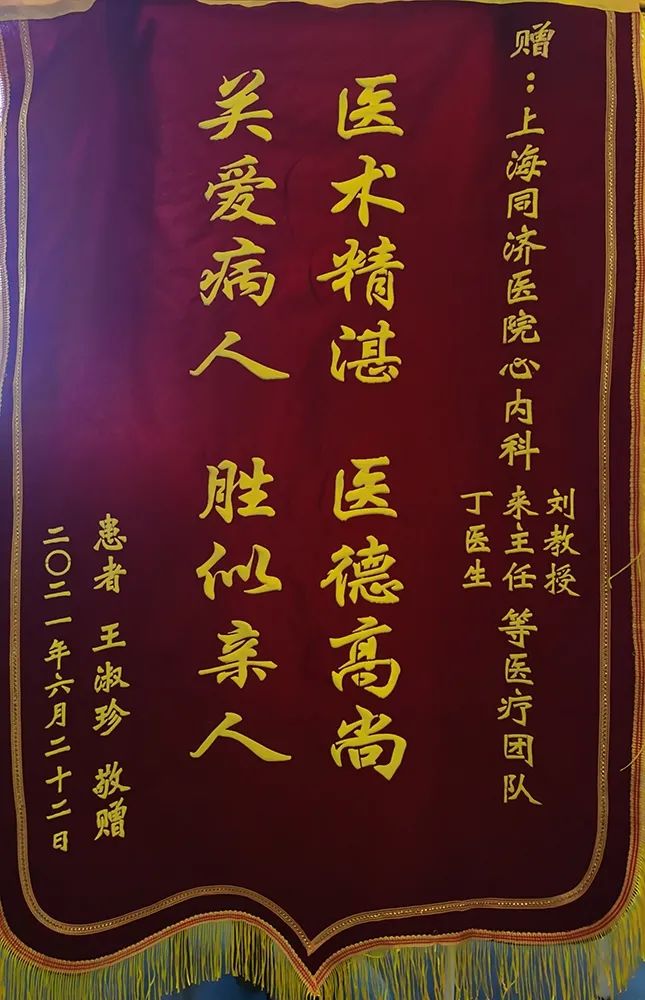 赠：上海同济医院心内科
刘教授
来主任
丁医生
等医疗团队
医术精湛 医德高尚
关爱病人 胜似亲人
患者 王淑珍 敬赠
二〇二一年六月二十二日